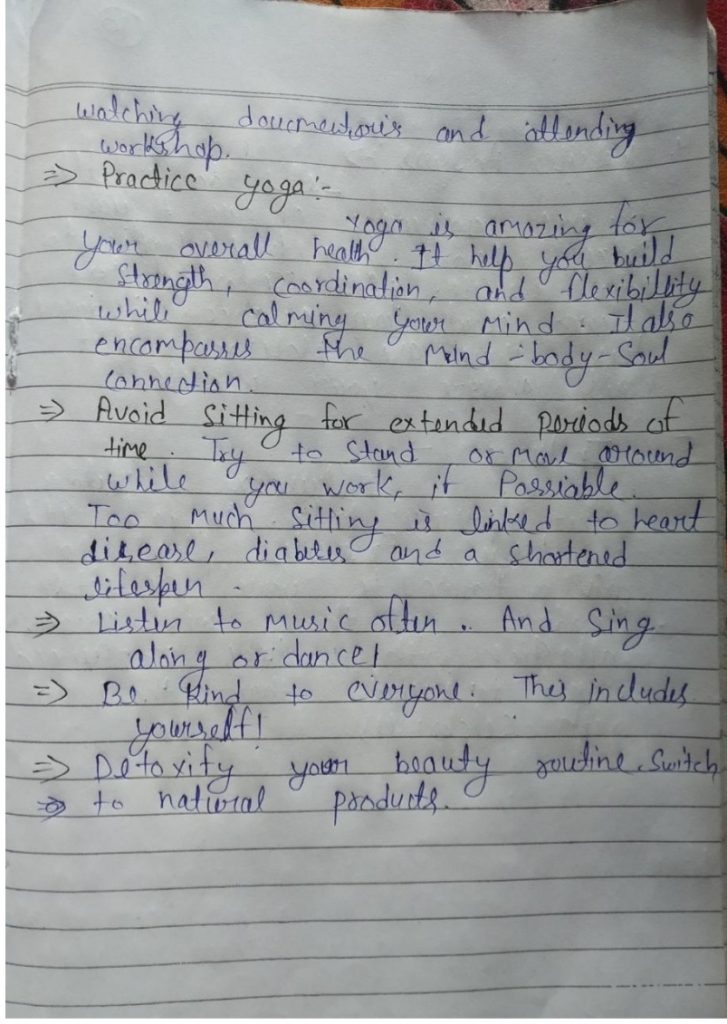 watching doucmentouris and attending
workshop.
=> Practice yoga :-
Yoga is amazing for
your overall health. It help you build
Strength, coordination, and flexibility
while calming your mind. It also
encompasses the mind-body-Soul
connection.
=> Avoid Sitting for extended periods of
time. Try to Stand or move around
while you work, if Possiable.
Too much Sitting is linked to heart
disease, diabetes and a shortened
lifespen.
=> Listen to music often.. And Sing
along or dance!
=> Be Kind to everyone. This includes
yourself!
=> Detoxify your beauty routine. Switch
=> to natural products.